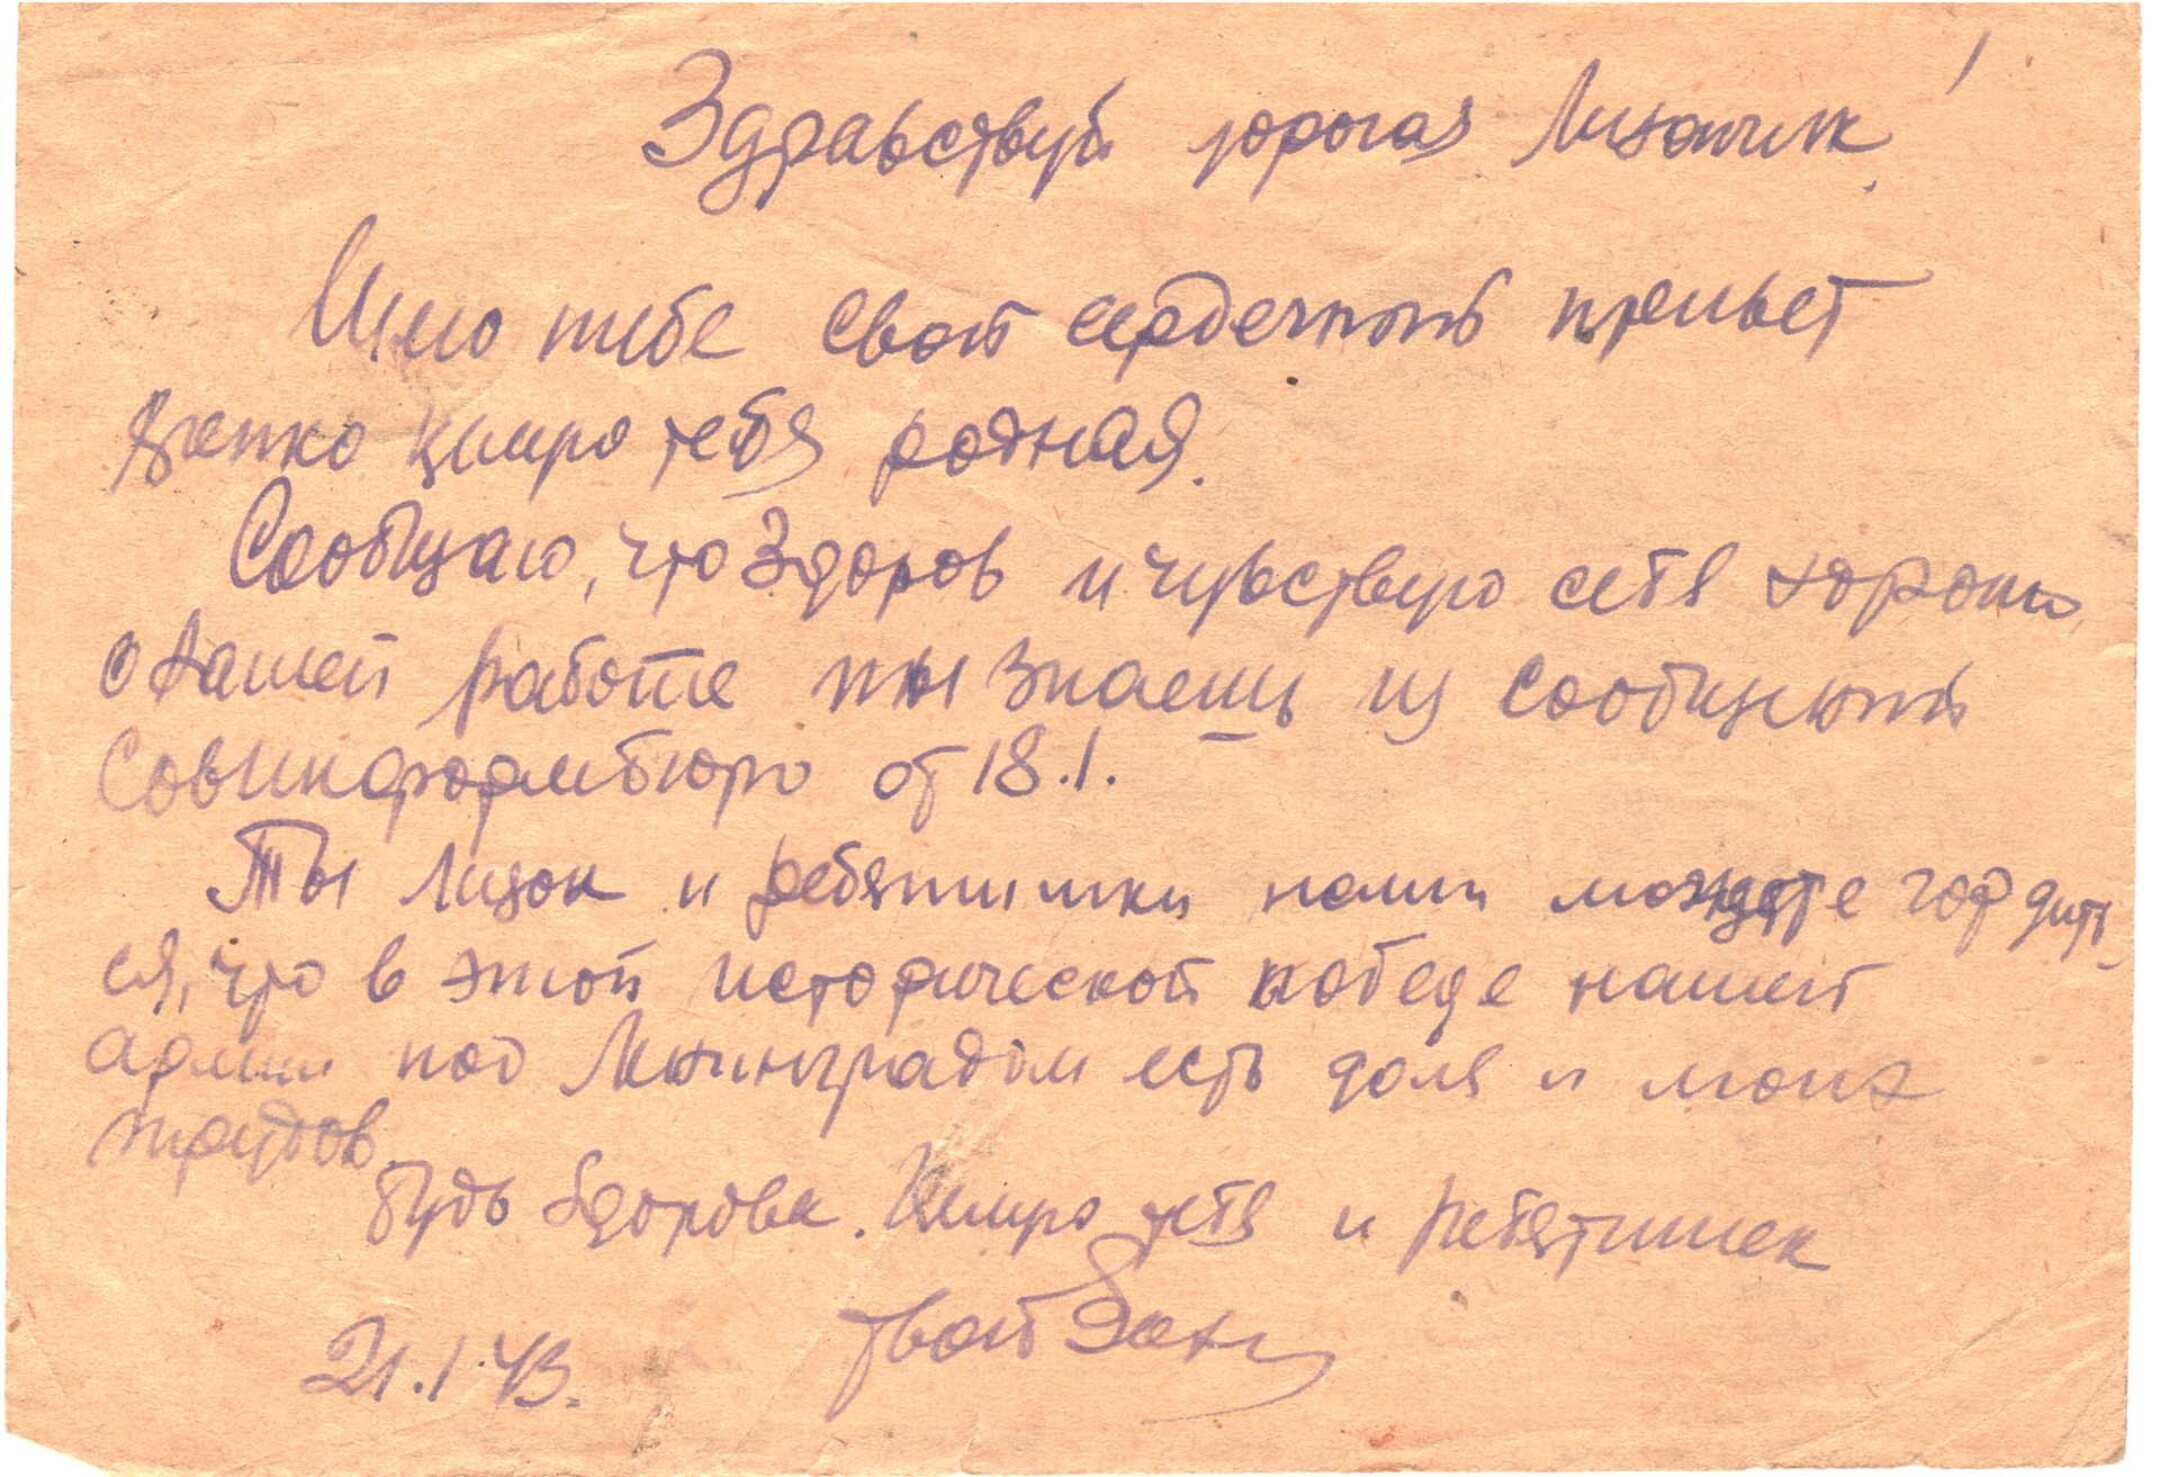 Здравствуй дорогая Лизочик!
Шлю тебе свой сердечный привет
крепко целую тебя родная.
Сообщаю, что здоров и чувствую себя хорошо
о нашей работе ты знаешь из сообщений
Совинформбюро от 18.1.
Ты Лизок и ребятишки наши можете гордить
ся, что в этой исторической победе нашей
армии под Ленинградом есть доля и моих
трудов.
Будь здорова. Целую тебя и ребятишек
твой
21.1.43.